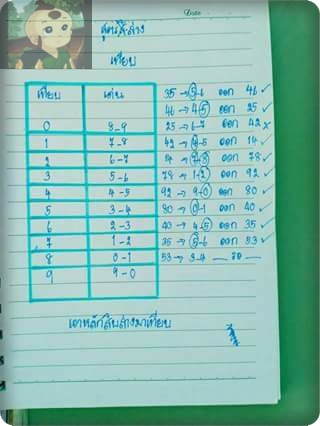 Date
สูตรสิบล่าง
เทียบ
เทียบ เด่น
0 8-9
1 7-8
2 6-7
3 5-6
4 4-5
5 3-4
6 2-3
7 1-2
8 0-1
9 9-0
35 → 5-6 ออก 46 ✓
46 → 4-5 ออก 25 ✓
25 → 6-7 ออก 42 ×
42 → 4-5 ออก 14 ✓
14 → 7-8 ออก 78 ✓
78 → 1-2 ออก 92 ✓
92 → 9-0 ออก 80 ✓
80 → 0-1 ออก 40 ✓
40 → 4-5 ออก 35 ✓
35 → 5-6 ออก 53 ✓
53 → 3-4 __ รอ __
เอาหลักสิบล่างมาเทียบ